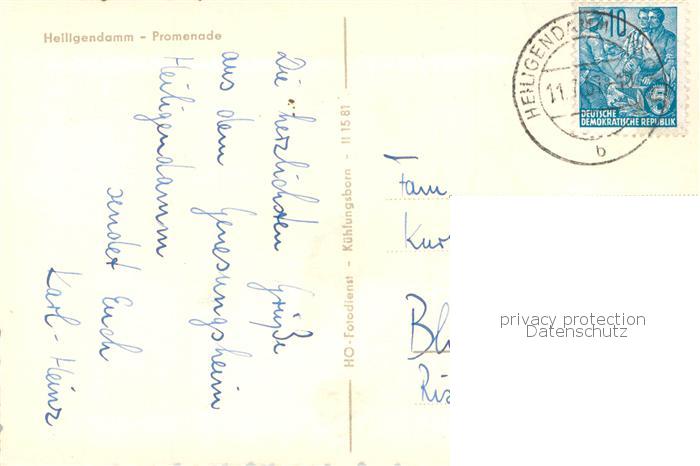 Heiligendamm - Promenade
Die herzlichsten Grüße
aus dem Genesungsheim
Heiligendamm
sendet Euch
Karl-Heinz
HO-Fotodienst - Kühlungsborn - II 15 81
HEILIGENDAMM
11.
b
10
DEUTSCHE
DEMOKRATISCHE REPUBLIK
Fam.
Kur
Bl
privacy protection
Datenschutz